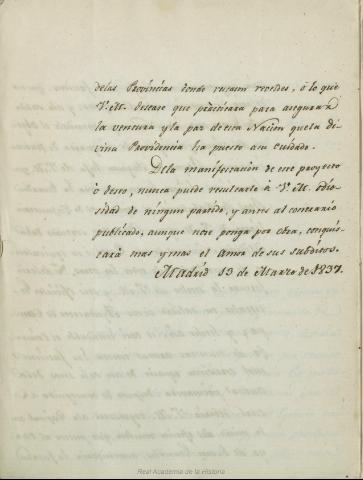 delas Provincias donde
ó lo que
V. M. desease que practicara para asegurar
la ventura y la paz de esta Nacion que la di-
vina Providencia ha puesto a su cuidado.
Dela manifestacion de este proyecto
ó deseo, nunca puede resultarle á V. M. odio-
sidad de ningun partido, y antes al contrario
publicado, aunque no se ponga por obra, conquis-
tará mas y mas el amor de sus subditos.
Madrid 13 de Marzo de 1837.
Real Academia de la Historia